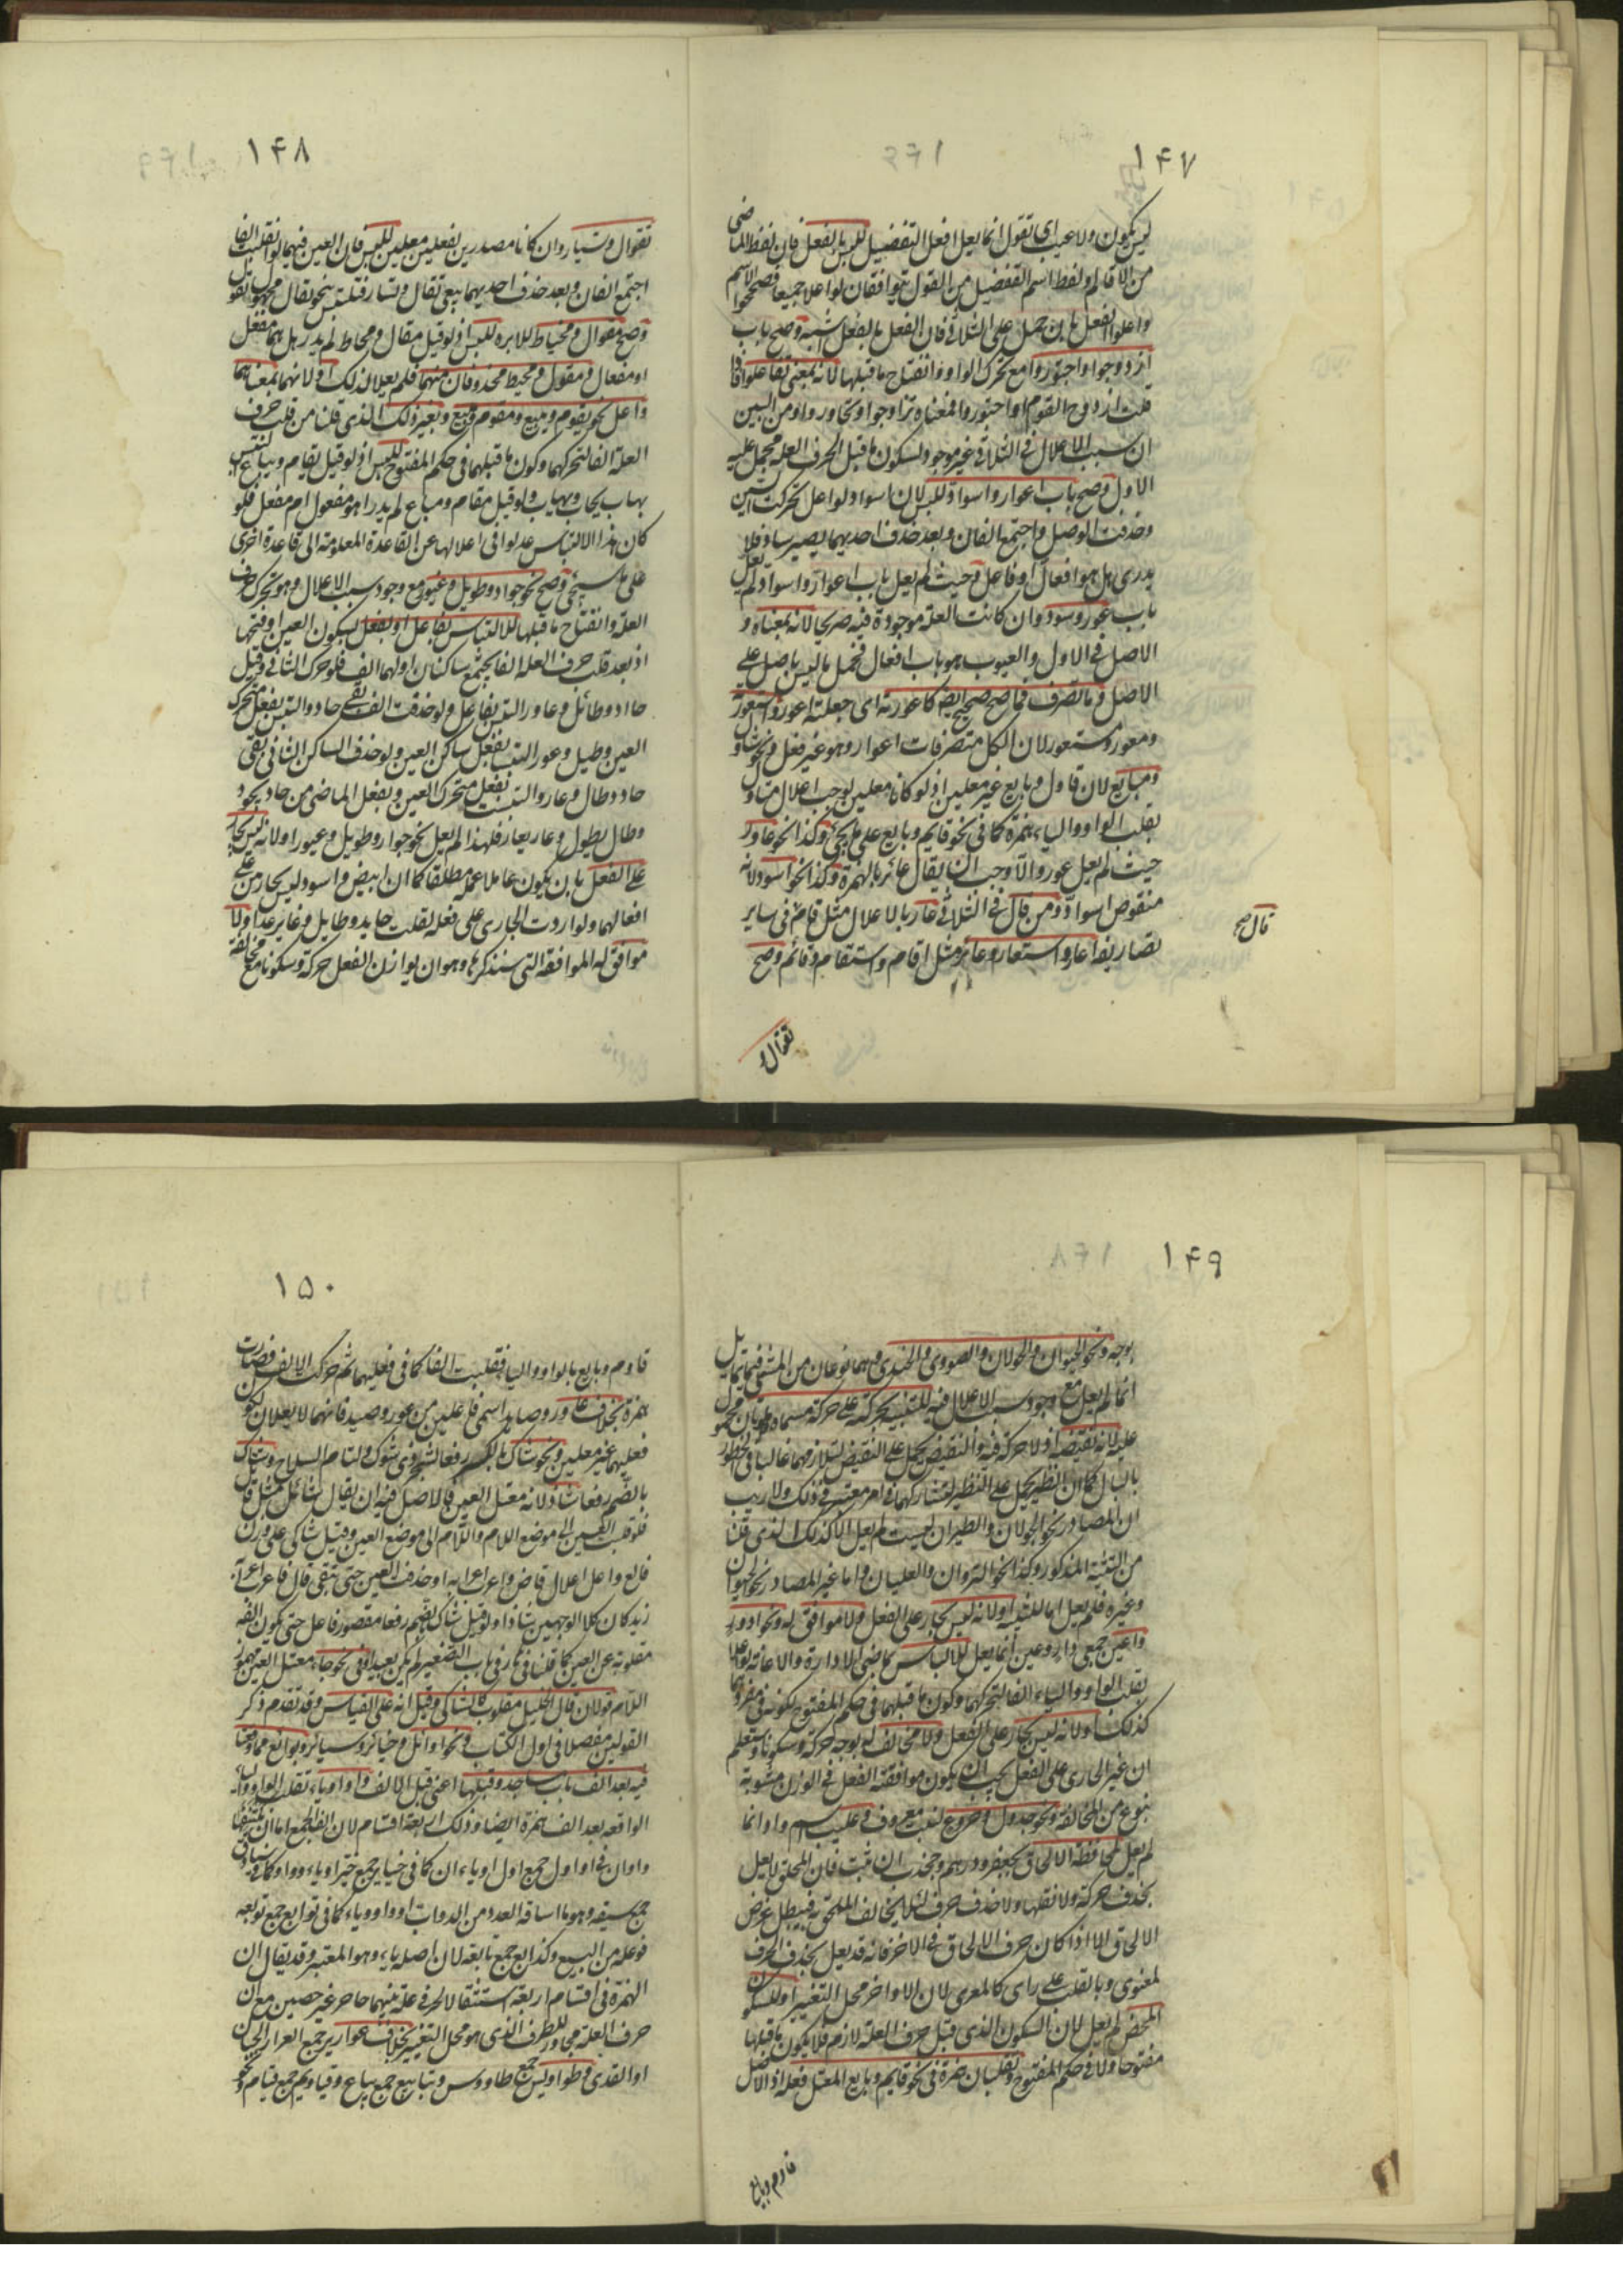 ١٤٧
ليس بكون ولا عيب اى تقول انما يعل افعل التفضيل للبس بالفعل فان لفظ الماضى
من الاقالة ولفظ اسم التفضيل من القول يتوافقان لو اعلا جميعا فصححوا الاسم
واعلوا الفعل لان حمل على الثلاثى فان الفعل بالفعل اشبه وصح باب
ازدوجوا واجتوروا مع تحرك الواو وانفتاح ما قبلها لانه بمعنى تفاعلوا فاذا
قلت ازدوج القوم او اجتوروا فمعناه تزاوجوا وتجاوروا ومن البين
ان سبب الاعلال فى الثلاثى غير موجود لسكون ما قبل الحرف العلة فحمل عليه
الاول وصح باب اعوار واسواد للبس لان اسواد لو اعل تحركت السين
وحذفت الوصل واجتمع الفان وبعد حذف احديهما يصير ساد فلا
يدرى هل هو افعال او فاعل وحيث لم يعل باب اعوار واسواد لم يعل
باب عور وسود وان كانت العلة موجودة فيه صريحا لانه بمعناه و
الاصل فى الاول والعيوب هو باب افعال فحمل ما ليس باصل على
الاصل وما تصرف مما صح صحيح ايضا كاعورته اى جعلته اعور واستعورته
ومعور ومستعور لان الكل متصرفات اعوار وهو غير فعل ونحو تقاول
ومبايع لان قاول وبايع غير معلين اذ لو كانا معلين لوجب اعلال مقاول
بقلب الواو والياء همزة كما فى نحو قايم وبايع على ما يجئ وكذا نحو عاور
حيث لم يعل عور والا وجب ان يقال عائر بالهمزة وكذا نحو اسود لانه
منقوص اسواد ومن قال فى الثلاثى عار بالاعلال مثل قام فى ساير
تصاريفه اعار واستعار وعائر مثل اقام واستقام وقائم وصح
قال صح
تقوال و
١٤٨
تقوال وتسيار وان كانا مصدرين لفعلين معلين للبس فان العين فيهما لو انقلبت الفا
اجتمع الفان وبعد حذف احديهما يبقى تقال وتسار فتلتبس بنحو يقال مجهول تقول
وصح مقوال ومخياط للابرة للبس اذ لو قيل مقال ومخاط لم يدر هل هما مفعل
او مفعال ومقول ومخيط محذوفان منهما فلم يعلا لذلك او لانهما بمعناهما
واعل نحو يقوم ويبيع ومقوم ومبيع وبغير ذلك الذى قلنا من قلب حرف
العلة الفا لتحركهما وكون ما قبلهما فى حكم المفتوح للبس اذ لو قيل يقام ويباع لالتبس
بهاب يخاب ويهاب ولو قيل مقام ومباع لم يدر اهو مفعول ام مفعل فلو
كان هذا الالتباس عدلوا فى اعلالها عن القاعدة المعلومة الى قاعدة اخرى
على ما سيجئ وصح نحو جواد وطويل وغيور مع وجود سبب الاعلال وهو تحرك حرف
العلة وانفتاح ما قبلها للالتباس بفاعل او بفعل بسكون العين او فتحها
اذ بعد قلب حرف العلة الفا يجتمع ساكنان اولهما الف فلو حرك الثانى وقيل
حااد وطائل وعاور التبس بفاعل ولو حذفت الف بقى حاد والتبس بفعل متحرك
العين وطيل وعور التبس بفعل ساكن العين ولو حذف الساكن الثانى بقى
حاد وطال وعار والتبست بفعل متحرك العين وبفعل الماضى من حاد يجود
وطال يطول وعار يعار فلهذا لم يعل نحو جواد وطويل وغيور او لانه ليس بجار
على الفعل بان يكون عاملا عمله مطلقا كما ان ابيض واسود ليس بجار من على
افعالهما ولو اردت الجارى على فعله لقلت حايد وطايل وغاير غدا ولا
موافق له الموافقة التى سنذكرها وهو ان يوازن الفعل حركة وسكونا مع مخالفة
١٤٩
بوجه ونحو الحيوان والجولان والصورى والحيدى وهما نوعان من المشى فيهما تمايل
انما لم يعل مع وجود سبب الاعلال فيه للتنبيه بحركته على حركة مسماه والموتان محمول
عليه لانه نقيضه اذ لا حركة فيه والنقيض يحمل على النقيض لتلازمهما غالبا فى الخطور
بالبال كما ان النظير يحمل على النظير لتشاركهما فى امر معتبر فى ذلك ولا ريب
ان المصادر نحو الجولان والطيران ليست لم يعل الا كذلك الذى قلنا
من التنبيه المذكور وكذا نحو النزوان والغليان واما غير المصادر نحو الحيوان
وغيره فلم يعل اما للتنبيه او لانه ليس بجار على الفعل ولا موافق له ونحو ادور
واعين جمعى دار وعين انما لم يعل للالباس بماضى الادارة والاعانة لو اعلا
بقلب الواو والياء الفا لتحركهما وكون ما قبلهما فى حكم المفتوح لكونه فى مفردهما
كذلك او لانه ليس بجار على الفعل ولا مخالف له بوجه حركة وسكونا وستعلم
ان غير الجارى على الفعل يجب ان يكون موافقته الفعل فى الوزن مشوبة
بنوع من المخالفة ونحو جدول وخروع لنبت معروف وعليب اسم واد انما
لم يعل لمحافظة الالحاق بجعفر ودرهم وجخدب ان ثبت فان الملحق لا يعل
بحذف حركة ولا نقلها ولا حذف حرف لئلا يخالف الملحق به فيبطل غرض
الالحاق الا اذا كان حرف الالحاق فى الاخر فانه قد يعل بحذف الحرف
لمعنوى وبالقلب على راى كالمعرى لان الاواخر محل التغيير او للسكون
المحض لم يعل لان السكون الذى قبل حرف العلة لازم فلا يكون ما قبلها
مفتوحا ولا فى حكم المفتوح وتقلبان همزة فى نحو قايم وبايع المعتل فعله اذ الاصل
قاوم وبايع
١٥٠
قاوم وبايع بالواو والياء فقلبت الفا كما فى فعليهما ثم حركت الالف فصارت
همزة بخلاف عاور وصايد اسمى فاعلين من عور وصيد فانهما لا يعلان لكون
فعليهما غير معلين ونحو شاك بالكسر رفعا لشجر ذى شوك ولتام السلاح وشاك
بالضم رفعا شاذ لانه معتل العين فالاصل فيه ان يقال شائك مثل قايل
فلو قلبت العين الى موضع اللام واللام الى موضع العين وقيل شاكى على وزن
فالع واعل اعلال قاض واعرب اعرابه او حذفت العين حتى بقى فال فاعرب اعراب
زيد كان كلا الوجهين شاذا ولو قيل شاك بالضم رفعا مقصور فاعل حتى يكون الفه
مقلوبة عن العين كما قلنا فى هار فى باب التصغير لم يكن بعيدا وفى نحو جاء معتل العين مهموز
اللام قولان قال الخليل مقلوب كالشاكى وقيل انه على القياس وقد تقدم ذكر
القولين مفصلا فى اول الكتاب وفى نحو اوائل وخيائر وسيائق وبوائع مما وقعتا
فيه بعد الف باب مساجد وقبلها اعنى قبل الالف واو او ياء تقلب الواو والياء
الواقعة بعد الف همزة ايضا وذلك اربعة اقسام لان الف الجمع اما ان يكتنفها
واوان فى اواول جمع اول او ياءان كما فى خياير جمع خير او ياء وواو كما فى سياوق
جمع سيقه وهو ما استاقه العدو من الدواب او واو وياء كما فى توابع جمع تويعة
فوعله من البيع وكذا بع جمع بايعة لان اصله ياء وهو المعتبر وقد يقال ان
الهمزة فى اقسام اربعة استثقالا لحرفى علة بينهما حاجز غير حصين مع ان
حرف العلة مجاور للطرف الذى هو محل التغيير بخلاف عواوير جمع العوار الجبان
او القذى وطواويس جمع طاووس وبياييع جمع بياع وقياويم جمع قيام ونحو